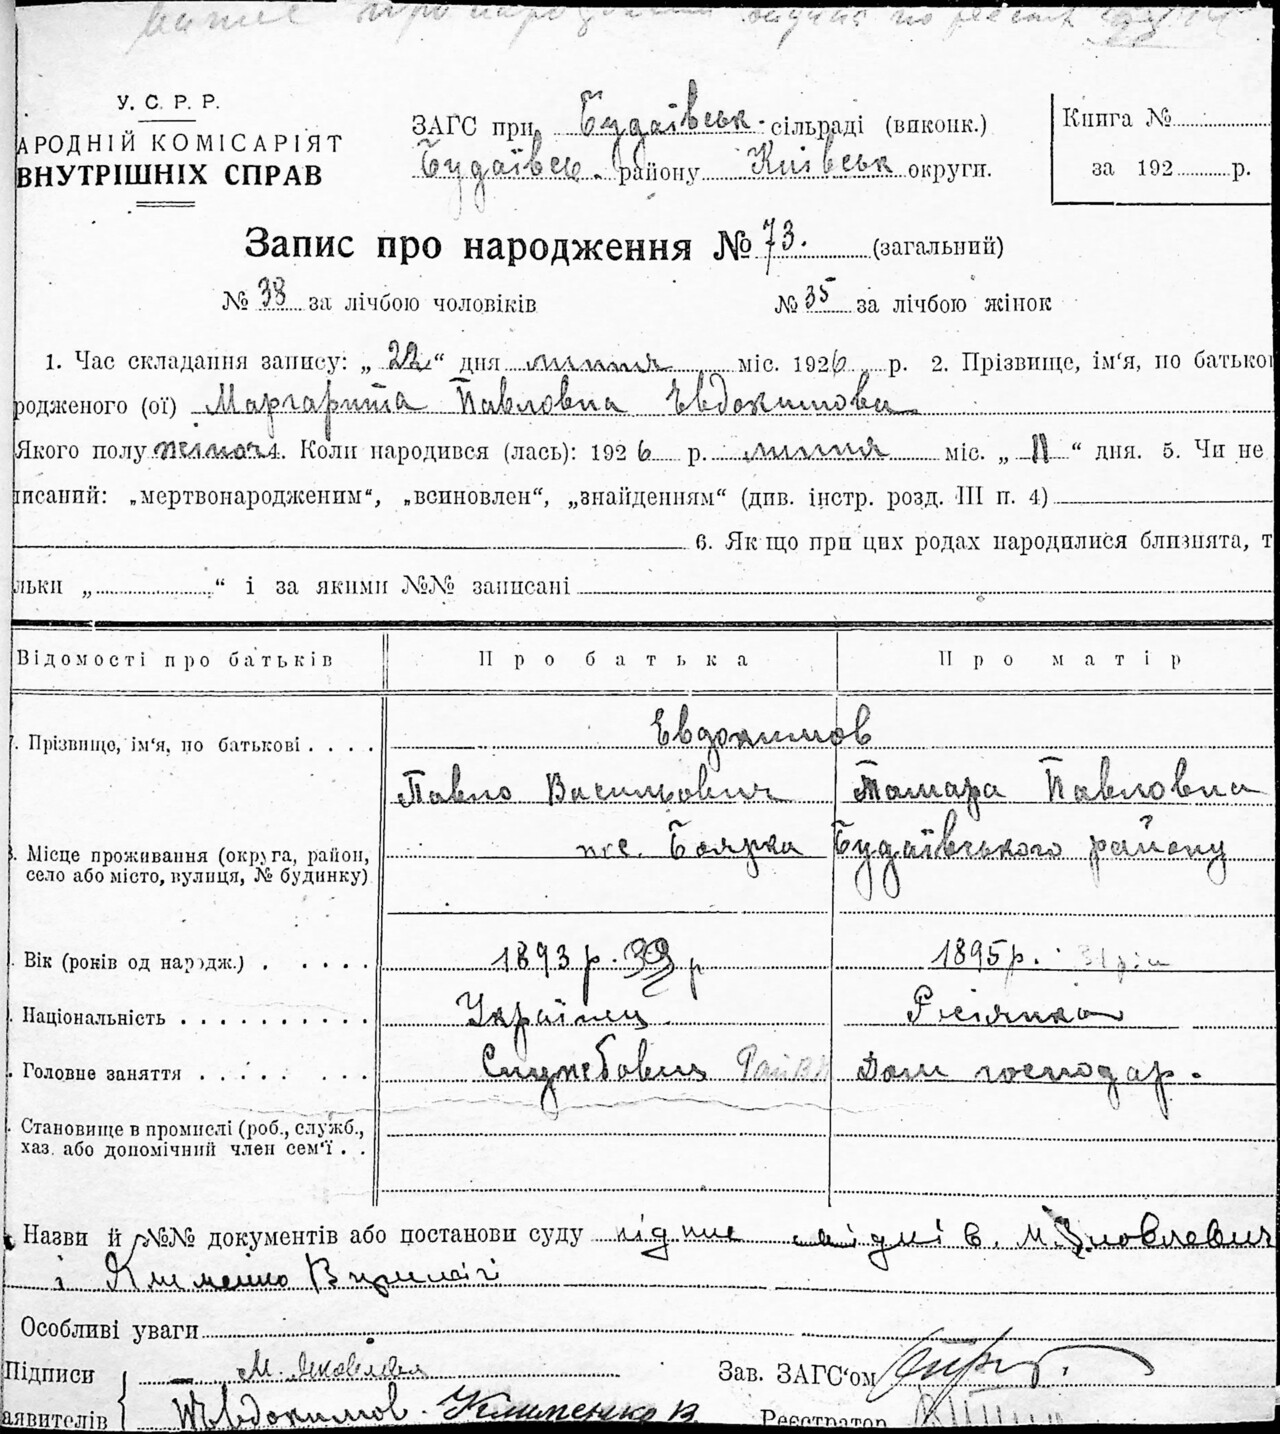 про народження видано по реєстр
У. С. Р. Р.
АРОДНІЙ КОМІСАРІЯТ
ВНУТРІШНІХ СПРАВ
ЗАГС при Будаївськ. сільраді (виконк.)
Будаївськ. району Київськ округи.
Книга №
за 192 р.
Запис про народження № 73. (загальний)
№ 38 за лічбою чоловіків № 35 за лічбою жінок
1. Час складання запису: „ 22 “ дня липня міс. 1926 р. 2. Прізвище, ім‘я, по батько
родженого (ої) Маргарита Павловна Евдокимова
Якого полу жіноч 4. Коли народився (лась): 1926 р. липня міс. „ 11 “ дня. 5. Чи не
писаний: „мертвонародженим“, „всиновлен“, „знайденням“ (див. інстр. розд. III п. 4)
6. Якщо при цих родах народилися близнята, т
льки „ “ і за якими №№ записані
Відомості про батьків Про батька Про матір
Прізвище, ім‘я, по батькові . . . . Евдокимов
Павло Васильович Тамара Павловна
Місце проживання (округа, район, село або місто, вулиця, № будинку) пос. Боярка Будаївського району
Вік (років од народж.) . . . . . 1893 р. 33 р 1895 р. 31 рік
Національність . . . . . . . . . . Українец Росіянка
Головне заняття . . . . . . . . Службовец Дом господар.
Становище в промислі (роб., служб., хаз. або допомічний член сем‘ї . .
Назви й №№ документів або постанови суду підпис свідків. М. Яковлевич
і Клименко В
Особливі уваги
Підписи М. Яковлева Зав. ЗАГС‘ом
аявителів Евдокимов. Клименко В Реєстратор